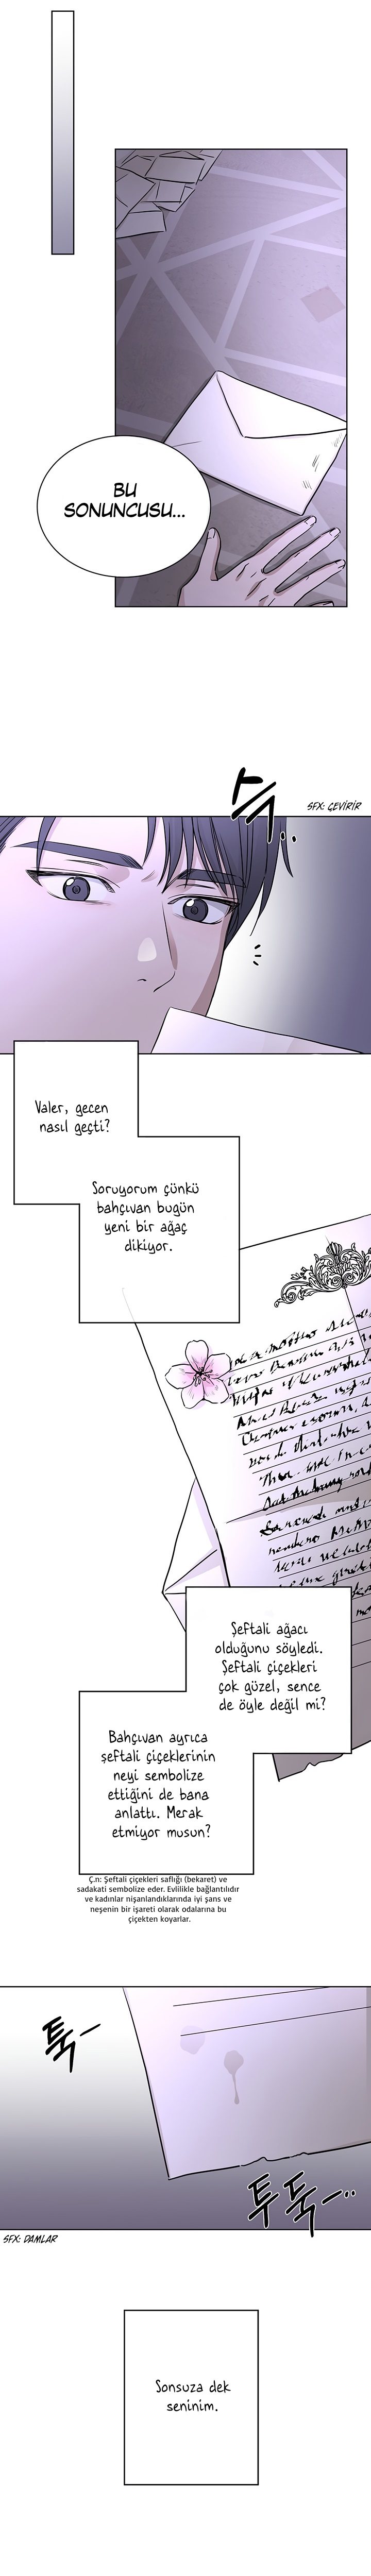 BU
SONUNCUSU...
스윽...
SFX: ÇEVİRİR
Valer, gecen
nasıl geçti?
Soruyorum çünkü
bahçıvan bugün
yeni bir ağaç
dikiyor.
Şeftali ağacı
olduğunu söyledi.
Şeftali çiçekleri
çok güzel, sence
de öyle değil mi?
Bahçıvan ayrıca
şeftali çiçeklerinin
neyi sembolize
ettiğini de bana
anlattı. Merak
etmiyor musun?
Ç.n: Şeftali çiçekleri saflığı (bekaret) ve
sadakati sembolize eder. Evlilikle bağlantılıdır
ve kadınlar nişanlandıklarında iyi şans ve
neşenin bir işareti olarak odalarına bu
çiçekten koyarlar.
툭-
투둑-...
SFX: DAMLAR
Sonsuza dek
seninim.